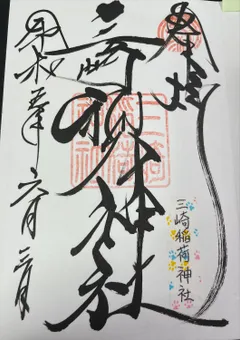 奉拝
三崎稲荷神社
三崎稲荷神社
令和五年六月三日